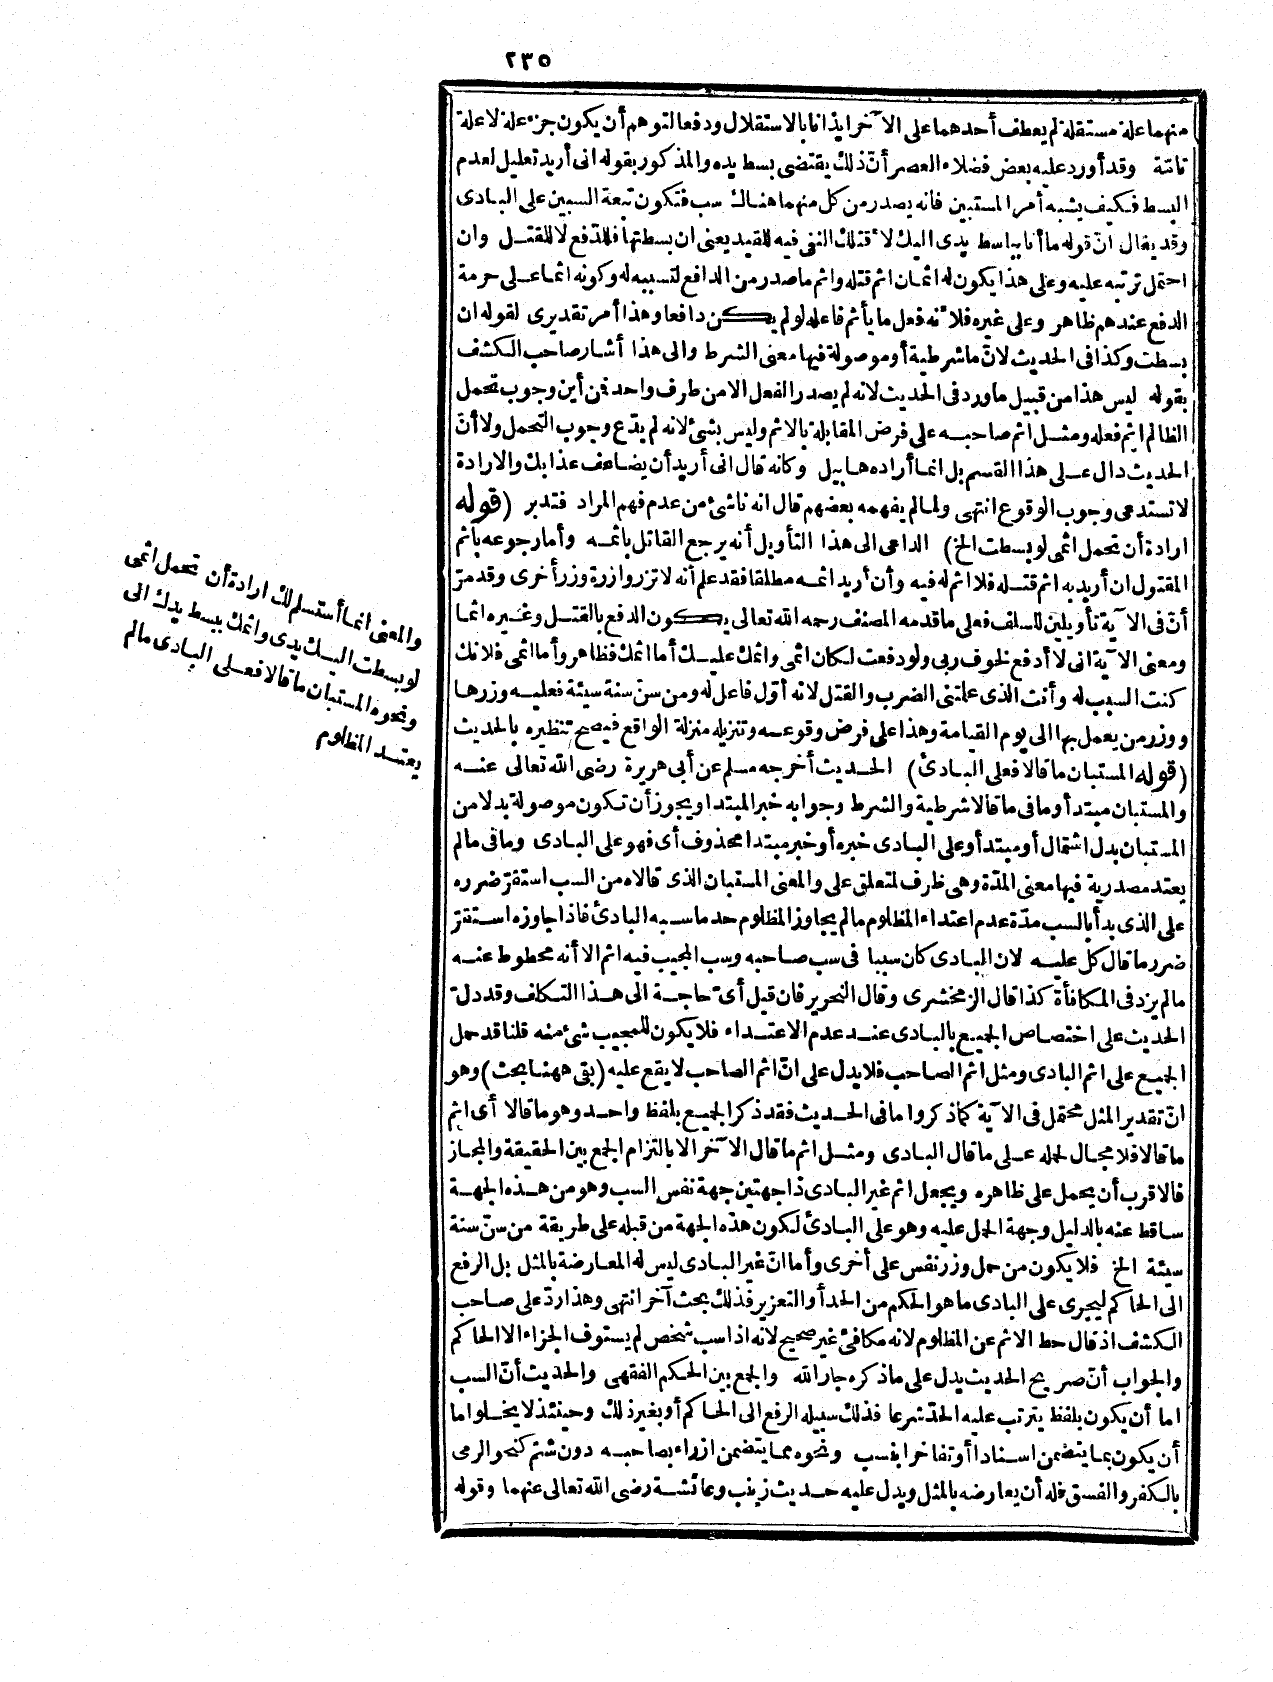 ٢٣٥
منهما علة مستقلة لم يعطف أحدهما على الآخر ايذانا بالاستقلال ودفعا لتوهم أن يكون جزء علة لا علة
تامّة وقد أورد عليه بعض فضلاء العصر أنّ ذلك يقتضى بسط يده والمذكور بقوله انى أريد تعليل لعدم
البسط فكيف يشبه أمر المستبين فانه يصدر من كل منهما هناك سب فتكون تبعة السبين على البادى
وقد يقال انّ قوله ما أنا بباسط يدى اليك لاقتلك النفى فيه للقيد يعنى ان بسطتها فللدّفع لا للقتل وان
احتمل ترتبه عليه وعلى هذا يكون له اثمان اثم قتله واثم ما صدر من الدافع لتسببه له وكونه اثما على حرمة
الدفع عندهم ظاهر وعلى غيره فلأنه فعل ما يأثم فاعله لو لم يكن دافعا وهذا أمر تقديرى لقوله ان
بسطت وكذا فى الحديث لانّ ما شرطية أو موصولة فيها معنى الشرط والى هذا أشار صاحب الكشف
بقوله ليس هذا من قبيل ما ورد فى الحديث لانه لم يصدر الفعل الا من طرف واحد فمن أين وجوب تحمل
الظالم اثم فعله ومثل اثم صاحبه على فرض المقابلة بالاثم وليس بشئ لانه لم يدّع وجوب التحمل ولا أنّ
الحديث دال على هذا القسم بل انما أراده هابيل وكانه قال انى أريد أن يضاعف عذابك والارادة
لا تستدعى وجوب الوقوع انتهى ولما لم يفهمه بعضهم قال انه ناشئ من عدم فهم المراد فتدبر (قوله
ارادة أن تحمل اثمى لو بسطت الخ) الداعى الى هذا التأويل أنه يرجع القاتل باثمه وأما رجوعه بأثم
المقتول ان أريد به اثم قتله فلا اثم له فيه وأن أريد اثمه مطلقا فقد علم أنه لا تزر وازرة وزر أخرى وقد مرّ
أنّ فى الآية تأويلين للسلف فعلى ما قدمه المصنف رحمه الله تعالى يكون الدفع بالقتل وغيره اثما
ومعنى الآية انى لا أدفع لخوف ربى ولو دفعت لكان اثمى واثمك عليك أما اثمك فظاهر وأما اثمى فلانك
كنت السبب له وأنت الذى علمتنى الضرب والقتل لانه أوّل فاعل له ومن سنّ سنة سيئة فعليه وزرها
ووزر من يعمل بها الى يوم القيامة وهذا على فرض وقوعه وتنزيله منزلة الواقع فيصح تنظيره بالحديث
(قوله المستبان ما قالا فعلى البادئ) الحديث أخرجه مسلم عن أبى هريرة رضى الله تعالى عنه
والمستبان مبتدأ وما فى ما قالا شرطية والشرط وجوابه خبر المبتدا ويجوز أن تكون موصولة بدلا من
المستبان بدل اشتمال أو مبتدأ وعلى البادى خبره أو خبر مبتدا محذوف أى فهو على البادى وما فى ما لم
يعتد مصدرية فيها معنى المدّة وهى ظرف لمتعلق على والمعنى المستبان الذى قالاه من السب استقرّ ضرره
على الذى بدأ بالسب مدّة عدم اعتداء المظلوم ما لم يجاوز المظلوم حد ما سبه البادئ فاذا جاوزه استقرّ
ضرر ما قال كل عليه لان البادى كان سببا فى سب صاحبه وسب المجيب فيه اثم الا أنه محطوط عنه
ما لم يزد فى المكافأة كذا قال الزمخشرى وقال النحرير فان قيل أىّ حاجة الى هذا التكلف وقد دلّ
الحديث على اختصاص الجميع بالبادى عند عدم الاعتداء فلا يكون للمجيب شئ منه قلنا قد حمل
الجميع على اثم البادى ومثل اثم الصاحب فلا يدل على انّ اثم الصاحب لا يقع عليه (بقى ههنا بحث) وهو
انّ تقدير المثل محتمل فى الآية كما ذكروا ما فى الحديث فقد ذكر الجميع بلفظ واحد وهو ما قالا أى اثم
ما قالا فلا مجال لحمله على ما قال البادى ومثل اثم ما قال الآخر الا بالتزام الجمع بين الحقيقة والمجاز
فالاقرب أن يحمل على ظاهره ويجعل اثم غير البادى ذا جهتين جهة نفس السب وهو من هذه الجهة
ساقط عنه بالدليل وجهة الحمل عليه وهو على البادئ لكون هذه الجهة من قبله على طريقة من سنّ سنة
سيئة الخ فلا يكون من حمل وزر نفس على أخرى وأما انّ غير البادى ليس له المعارضة بالمثل بل الرفع
الى الحاكم ليجرى على البادى ما هو الحكم من الحد أو التعزير فذلك بحث آخر انتهى وهذا ردّ على صاحب
الكشف اذ قال حط الاثم عن المظلوم لانه مكافئ غير صحيح لانه اذا سب شخص لم يستوف الجزاء الا الحاكم
والجواب أنّ صريح الحديث يدل على ما ذكره جار الله والجمع بين الحكم الفقهى والحديث أنّ السب
اما أن يكون بلفظ يترتب عليه الحدّ شرعا فذلك سبيله الرفع الى الحاكم أو بغير ذلك وحينئذ لا يخلو اما
أن يكون بما يتضمن اسنادا أو تفاخرا بنسب ونحوه مما يتضمن ازراء بصاحبه دون شتم كنحو الرمى
بالكفر والفسق فله أن يعارضه بالمثل ويدل عليه حديث زينب وعائشة رضى الله تعالى عنهما وقوله
والمعنى انما أستسلم لك ارادة أن تحمل اثمى
لو بسطت اليك يدى واثمك ببسط يدك الى
ونحوه المستبان ما قالا فعلى البادى ما لم
يعتد المظلوم